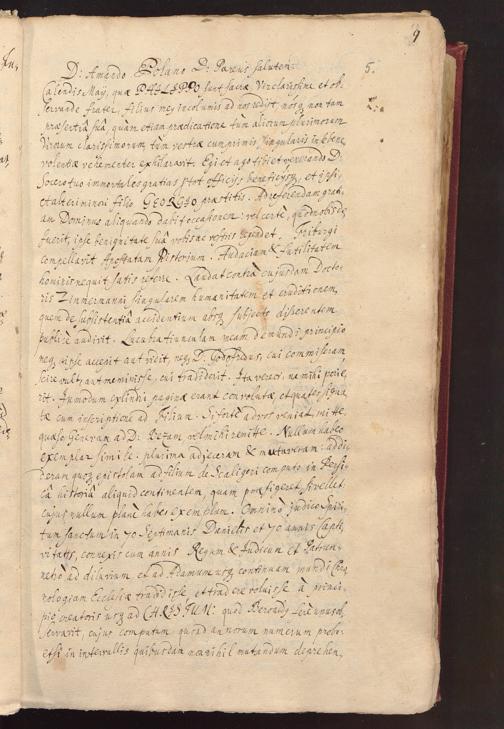 9
5.
D: Amando Polano D: Pareus salutem
Calendis Maij, quae PHILIPPO sunt sacrae Vir clarissime et ob-
servande frater, filius meus incolumis ad nos redijt, nosq non tam
praesentiâ suâ, quam etiam praedicatione tùm aliorum plurimorum
Virorum clarissimorum tum vestrae cumprimis singularis in se bene
volentiae vehementer exhilaravit. Egi et ago tibi et venerando D:
Socero tuo immortales gratias, quot officijs, beneficijsq et ipsi,
et alteri meo filio GEORGIO praestitis. Ad referendam grati-
am Dominus aliquando dabit occasionem: vel certè, quod nobis de
fuerit, ipse benignitate suâ votis ac vestris rependet. Friburgi
compellavit Apostatam Pistorium. Audaciam & futilitatem
hominis nequit satis referre. Laudat contrà cujusdam Docto-
ris Zimmermanni singularem humanitatem et eruditionem,
quem de subsistentia accidentium absq subjecto disserentem
publicè audivit. Lucubratiunculam meam de mundi principio
neq ipse accepit aut vidit, neq D. Godofredus, cui commiseram
scire vult, aut meminisse, cui tradiderit. Ita vereor, ne mihi perie-
rit. Qumodum exlindij paginae erant convolutae, et quateo, signa-
tae cum inscriptione ad filium. Si fortè ad vos veniat, mitte
quaeso Genevam ad D: Bezam vel mihi remitte. Nullum habeo
exemplar simile. plurima adjeceram & mutaveram: addi-
deram quoq epistolam ad filium de Scaligeri computo in Persi-
câ historiâ aliquid continentem, quam praefigeret, si vellet:
cujus nullum planè habeo exemplum. Omninò judico Spiri-
tum sanctum in 70 Septimanis Danielis et 70 annis Capti-
vitatis, connexis cum annis Regum & Judicum et Patrum
retrò ad diluvium et ad Adamum usq continuam mundi Chro-
nologiam Ecclesiae tradidisse et tradere voluisse à princi-
pio creationis usq ad CHRISTUM: quod Beroaldus ferè unus ob-
servavit, cujus computum quoad annorum numerum probo:
etsi in intervallis quibusdam nonnihil mutandum deprehen-